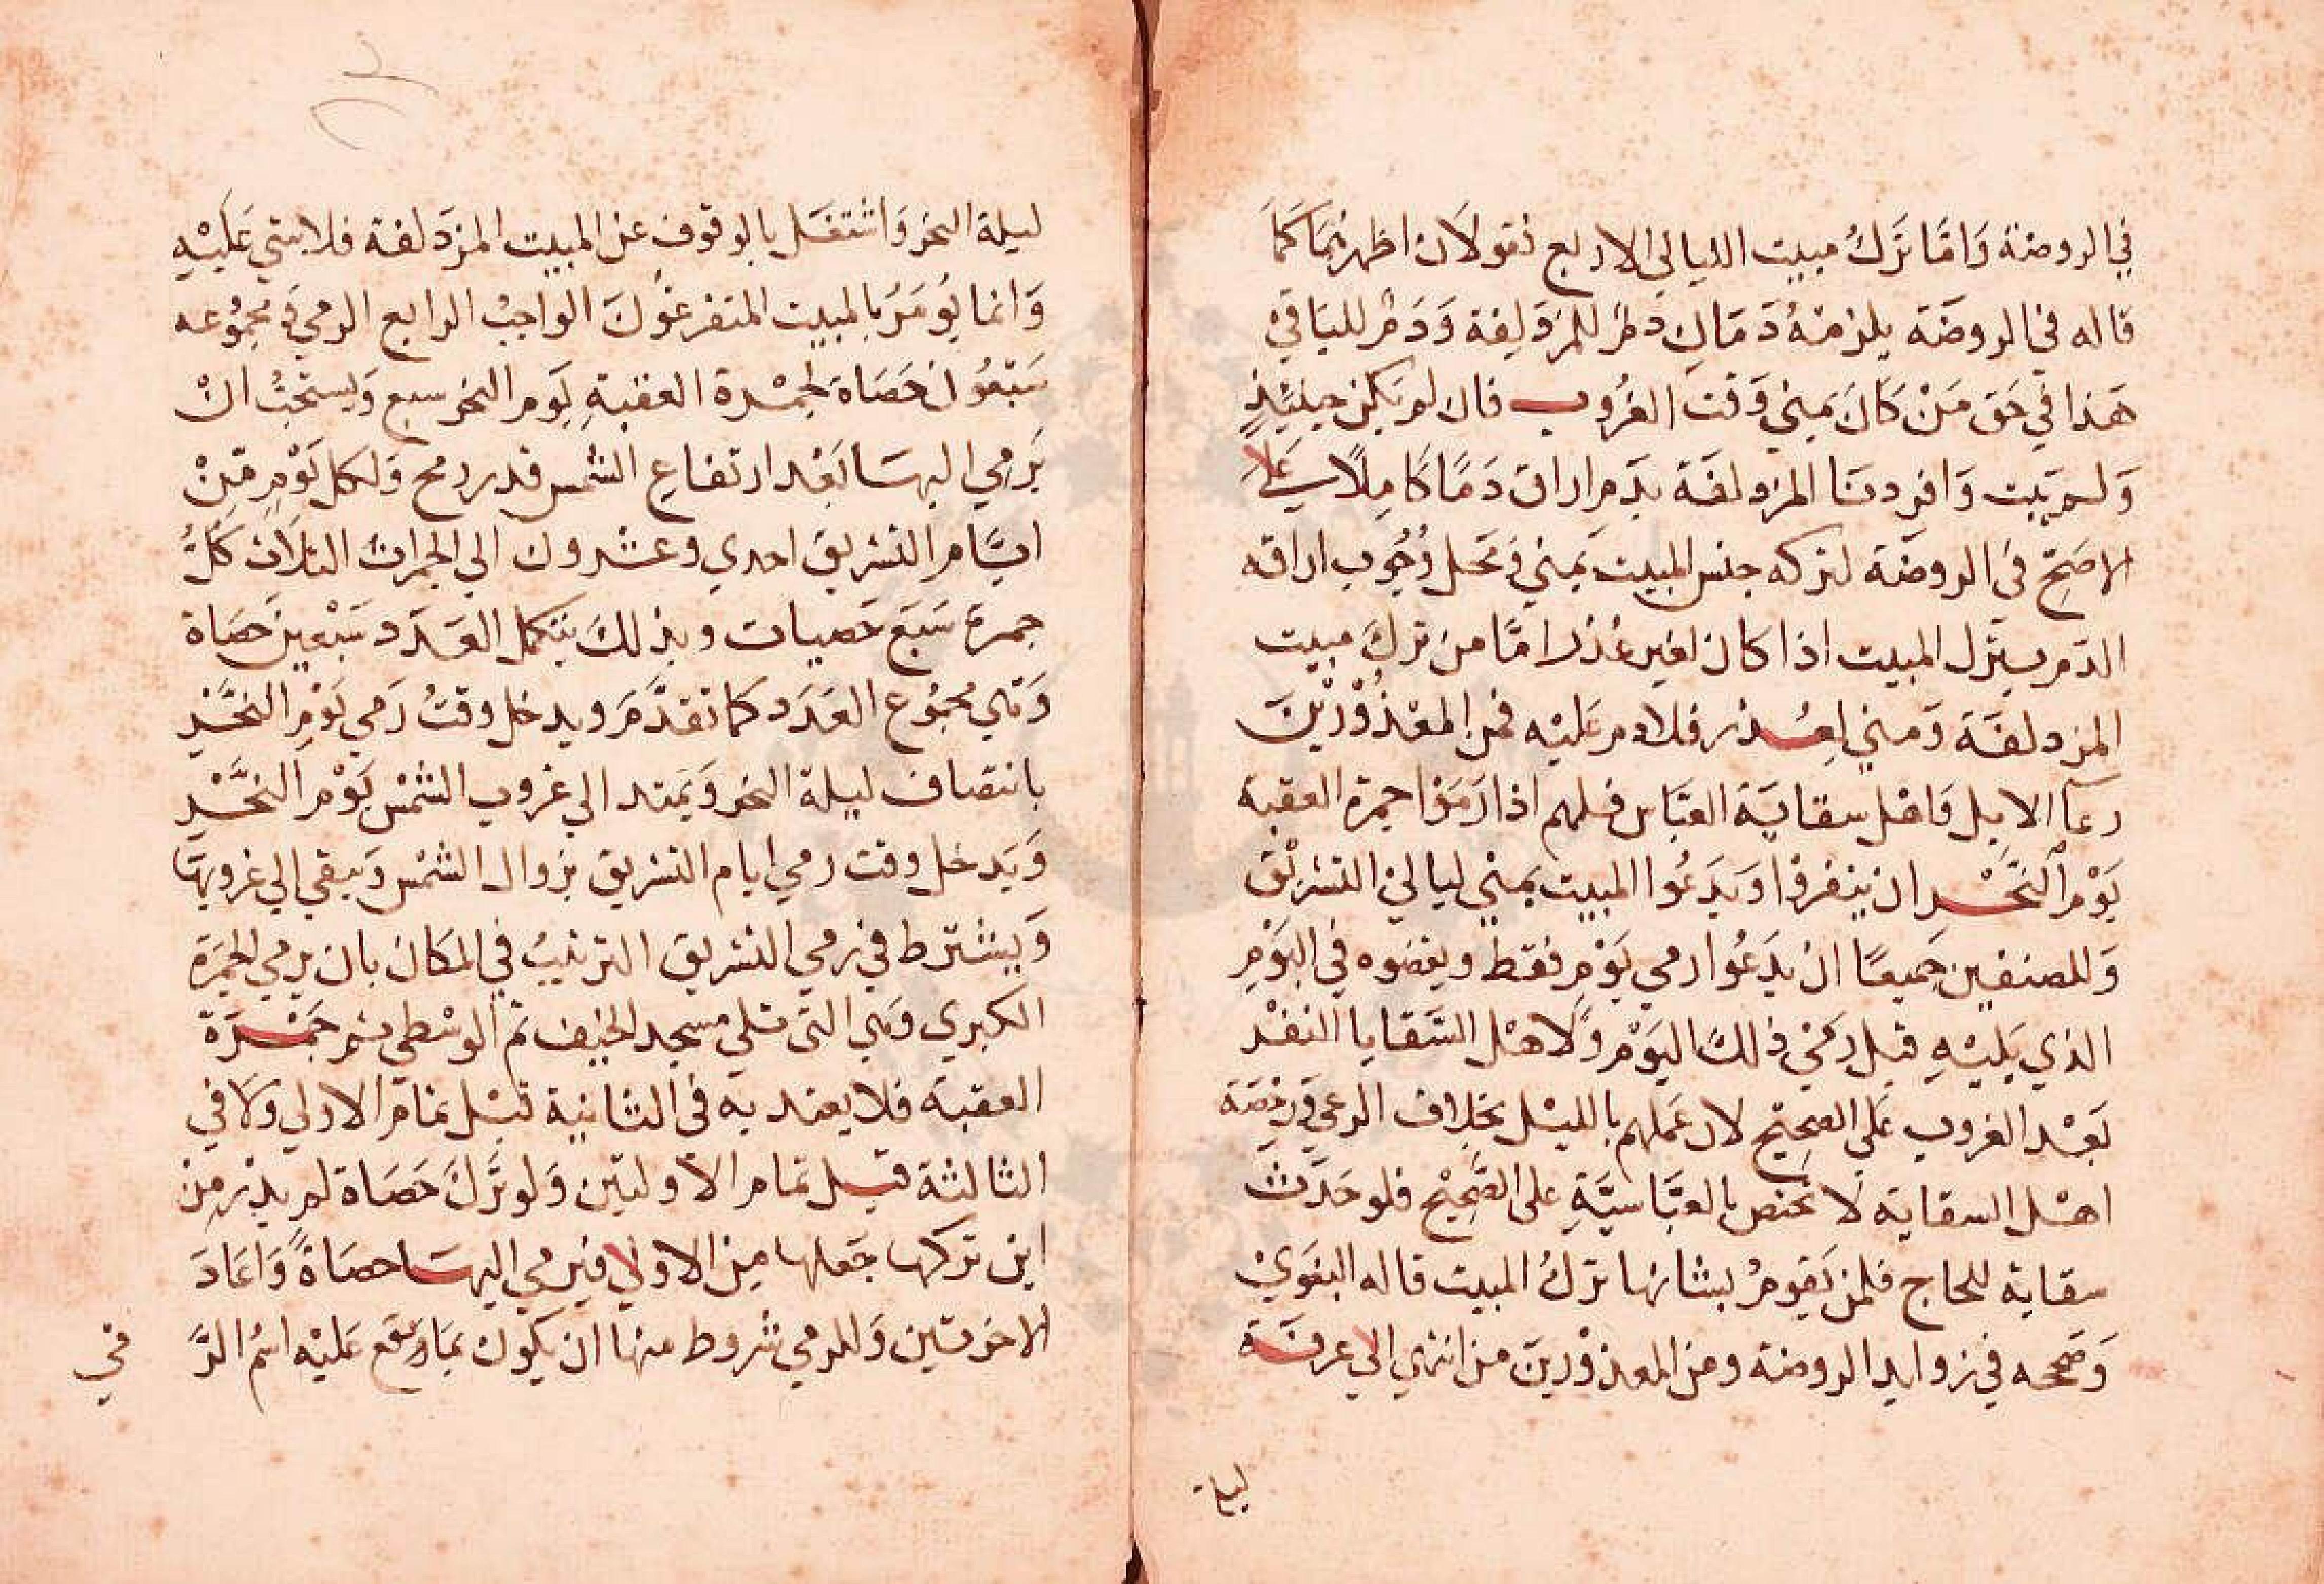 في الروضنة وَامَّا تَركُ مبيت الليالي الاربع نقولان اظهرهُمَا كَمَا
قاله في الروضَة يلزمنهُ دَمَان دَمٌ للمزدَلِفة وَدَمٌ للبَاقيْ
هَذا في حَق مَنْ كانَ بمني وَقتَ الغرُوب فان لم يَكن حِينَئذٍ
وَلم يَبِت وَافردنَا المزدلفَة بدَم اراق دَمًا كَامِلًا عَلي
الاصَحّ في الروضَة لتركه جنس المبيت بمني وَ محَل وُجُوب اراقه
الدَم بِتَرك المبيت اذا كان لغير عُذر امَّا من تَركَ مبيت
المزدلفَة وَمني لعُذر فلا دم عَليْه فمن المعْذُوْرْينَ
رعآ الابِل وَاهْل سقايَة العبَّاس فلهم اذا رَمَوا جمرة العقبة
يَوْم النَّحْر ان ينفروُا وَيَدَعُوا المبيت بمنْي ليالي التشريْق
وَللصنفين جَميعًا ان يَدَعُوا رمي يَوْمٍ فقط ويقضوه في اليَوْم
الذي يَليْهِ قبْل رَمْي ذلكَ اليَوْم وَلاهْل السَّقايا النفْر
بَعْد الغروب عَلي الصحِيْح لان عَملهم بالليْل بخلاف الرعي وَرخصَة
اهْل السقاية لَا تختص بالعبَّاسيَّةِ على الصَّحِيْح فلو حَدَثَت
سقاية للحاج فلمن يَقومُ بشانها تركُ المبيت قاله البغَويْ
وَصَححه في زوايد الروضة ومن المعذوْرينَ من انتهي الي عرفَة
ليلة
ليلة النحر وَاشْتغَل بالوقوف عن المبيت المزدَلفة فلا شي عَليْهِ
وَانما يُومَرُ بالمبيت المتفرغوْنَ الواجبُ الرابع الرمي وَ مجمُوعه
سَبْعُون حَصَاة لجمْرة العقبةِ يَوم النحر سبع وَيستحَبُّ انْ
يَرمي اليهَا بَعْد ارتفاع الشمس قدر رمح وَلكل يَوْمٍ مِنْ
ايَّام التشريق احدي وعشرون الي الجمرات الثلَاث كلُّ
جمرة سَبَعَ حَصيات وبذلكَ يتكمل العَدَد سَبْعين حَصَاة
وَهي مجموع العَدَد كما تقدَّمَ ويدخل وقتُ رَمي يَوْمِ النحَّر
بانتصاف ليلة النحر وَيَمتد الي غروب الشمْس يَوْم النَّحْر
وَيَدخل وقت رمي ايام التشريق بزوال الشمْس وَيبقي الي غروبهَا
وَيشترط في رمي التشريق الترتيبُ في المكَان بان يرمي الجمَرة
الكبري وَهي التي تلي مسجد الخيف ثم الوسْطي ثم جَمْرَة
العقبَة فلا يعتد به في الثانية قبْل تمَام الاولي وَلَا في
الثالثة قبْل تمام الاوليَيْن وَلو تَرَكَ حَصَاة لم يدْر مِنْ
اين تركها جَعلها مِن الاولي فيَرمي اليهَا حصَاةً وَاعَادَ
الاخرتين وَللرمي شروط منها ان يكوْن بمَا وَيقع عَليْه اسْم الرَّ
في